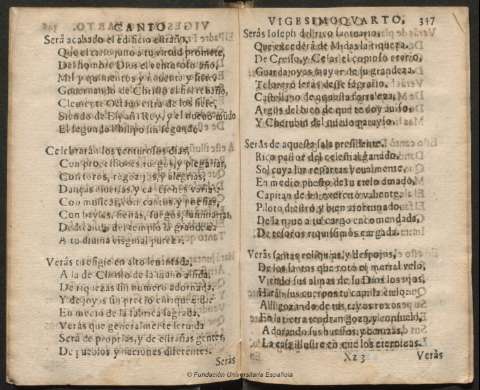 CANTO
Será acabado el edificio estraño,
Que el
Del hombre Dios el centesimo año,
Mil y quinientos y nouenta y siete:
Gouernando de Christo el
Clemente Octauo
Siendo de España Rey, y el nueuo mūdo
El segundo Philipo sin segundo.
Celebrarán los venturosos dias,
Con processiones ruegos, y plegarias,
Con toros, regozijos, y alegrias,
Danças
Con musicas, con cantos, y poesias,
Con fiestas, juegos, luminarias
Dedicando del templo la grandeza
A tu diuina virginal pureza.
Verás tu efigie en alto leuantada,
A la de Christo de la mano
De riquezas sin numero adornada,
Y de joyas sin precio
En medio de la fabrica sagrada,
Verás que generalmente
Será de proprias, y de estrañas gentes,
De pueblos y naciones diferentes.
Serás
VIGESIMOQVARTO. 317
Serás Ioseph del rico santuario,
Que excederá de Midas la riqueza,
De Cresso, y Cesar el copioso erario,
Guardajoyas mayor de su grandeza.
Tesorero serás deste sagrario,
Castellano de aquesta fortaleza,
Argos del bien de que te doy auiso,
Y Cherubin del nueuo parayso.
Serás de aquesta sala presidente,
Rico pastor del celestial ganado,
Sol cuya luz repartas ygualmente,
En medio puesto de tu cielo amado,
Capitan de tu exercito valiente,
Piloto diestro, y bien afortunado.
De la naue a tu cargo encomendada,
De tesoros riquissimos cargada.
Verás santas reliquias, y despojos,
De los santos que rotó el mortal velo,
Viendo sus almas de su Dios los ojos,
Harán sus cuerpos tu capilla cielo.
Alli gozando de
En la tierra tendran gozo, y consuelo,
Adorando sus huessos, y cenizas,
La casa illustre en que los eternizas.
X x 3 Verás
© Fundación Universitaria Española